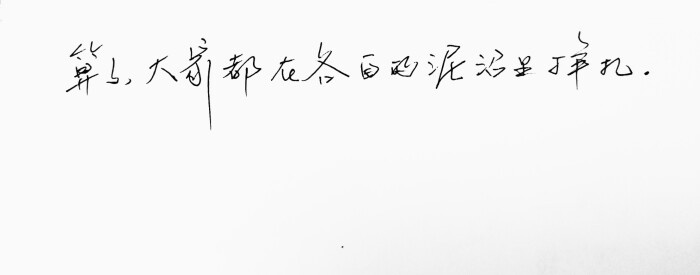 算了,大家都在各自的泥沼里挣扎.